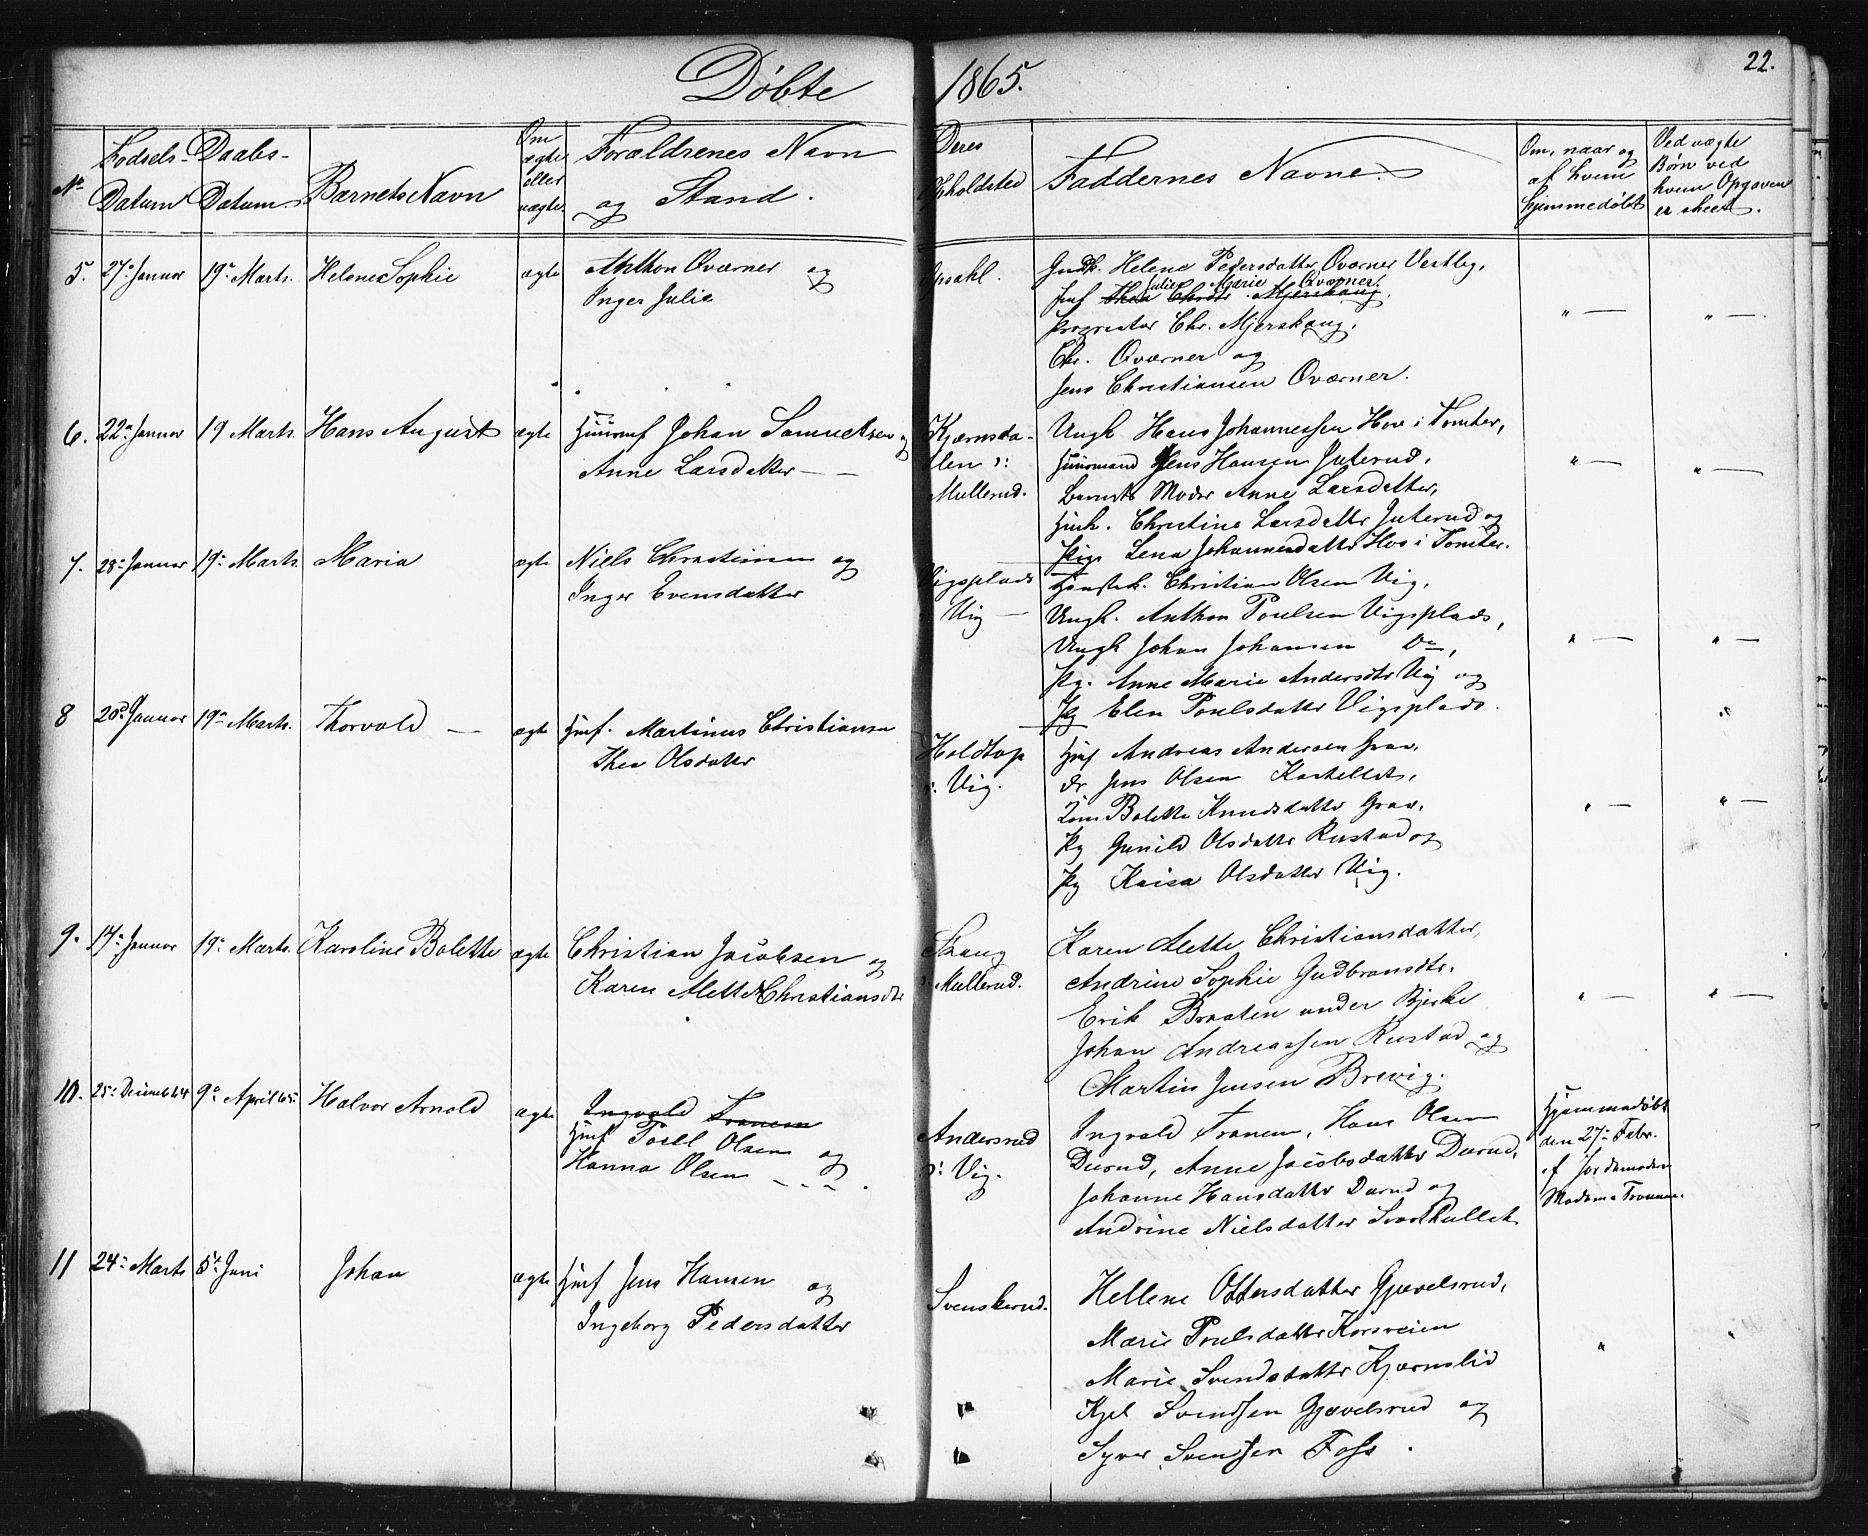 Døbte 1865.
22.
No
Fødsels-
Datum
Daabs-
Datum
Barnets Navn
Om
ægte
eller
uægte
Forældrenes Navn
og Stand.
Deres
Opholdsted
Faddernes Navne.
Om, naar og
af hvem
hjemmedøbt
Ved uægte
Børn ved
hvem Opgaven
er skeet.
5. 27de Januar 19de Marts. Helene Sophie ægte
Anthon Qværner og
Inger Julie
Opsahl.
Gudk. Helene Pedersdatter Qværner Vestby,
Julie Marie Qværner.
Propriætar Chr. Mjerskaug,
Chr. Qværner og
Jens Christiansen Qværner.
6. 22de Januar 19 Marts. Hans August ægte
Huusmf Johan Samuelsen og
Anne Larsdatter
Kjærnsda-
len v:
Mullerud.
Ungk. Hans Johannessen Hov i Tomter,
Huusmand Jens Hansen Juterud,
Barnets Moder Anne Larsdatter,
Huusk. Christine Larsdattr Juterud og
Pige Lena Johannesdattr Hov i Tomter.
7. 28de Januar 19de Marts. Maria ægte
Niels Christiansen og
Inger Evensdatter
Vigsplads
Vig
Christian Olsen Vig,
Ungk. Anthon Poulsen Vigsplads,
Ungk Johan Johansen Do,
Pg. Anne Marie Andersdtr Vig og
Pg Elen Poulsdatter Vigsplads.
8 20de Januar 19de Marts. Thorvald ægte
Huusf. Martinus Christiansen
Thea Olsdatter
Holdtop
v: Vig.
Huusf Andreas Andersen Grav,
do Jens Olsen Kastellet,
Bolette Knudsdattr Grav,
Pg Gunild Olsdattr Rustad og
Pg Kaisa Olsdatter Vig.
9. 14de Januar 19de Marts. Karoline Bolette ægte
Christian Jacobsen og
Karen Alette Christiansdtr
Skaug
v: Mullerud.
Karen Alette Christiansdatter,
Andrine Sophie Gudbransdtr.
Erik Braaten under Bjerke
Johan Andreassen Rustad og
Martin Jensen Brevig.
10. 25de Decimb 64 9de April 65. Halvor Arnold ægte
Ingvald Tranem
Huusf Poell Olsen og
Hanna Olsen
Andersrud
v: Vig.
Ingvald Tranem, Hans Olsen
Durud, Anne Jacobsdatter Durud,
Johanne Hansdattr Durud og
Andrine Nielsdatter Svarthullet
Hjemmedøbt
den 27de Febr.
af Jordemoder
Madame Tranem.
11 24de Marts 5te Juni Johan ægte
Huusf Jens Hansen og
Ingeborg Pedersdatter
Svenskerud.
Hellene Ottersdatter Gjævelsrud,
Marie Poulsdattr Korsveien
Marie Svendsdattr Kjærnslid
Kjel Svendsen Gjævelsrud og
Syver Svendsen Foss.